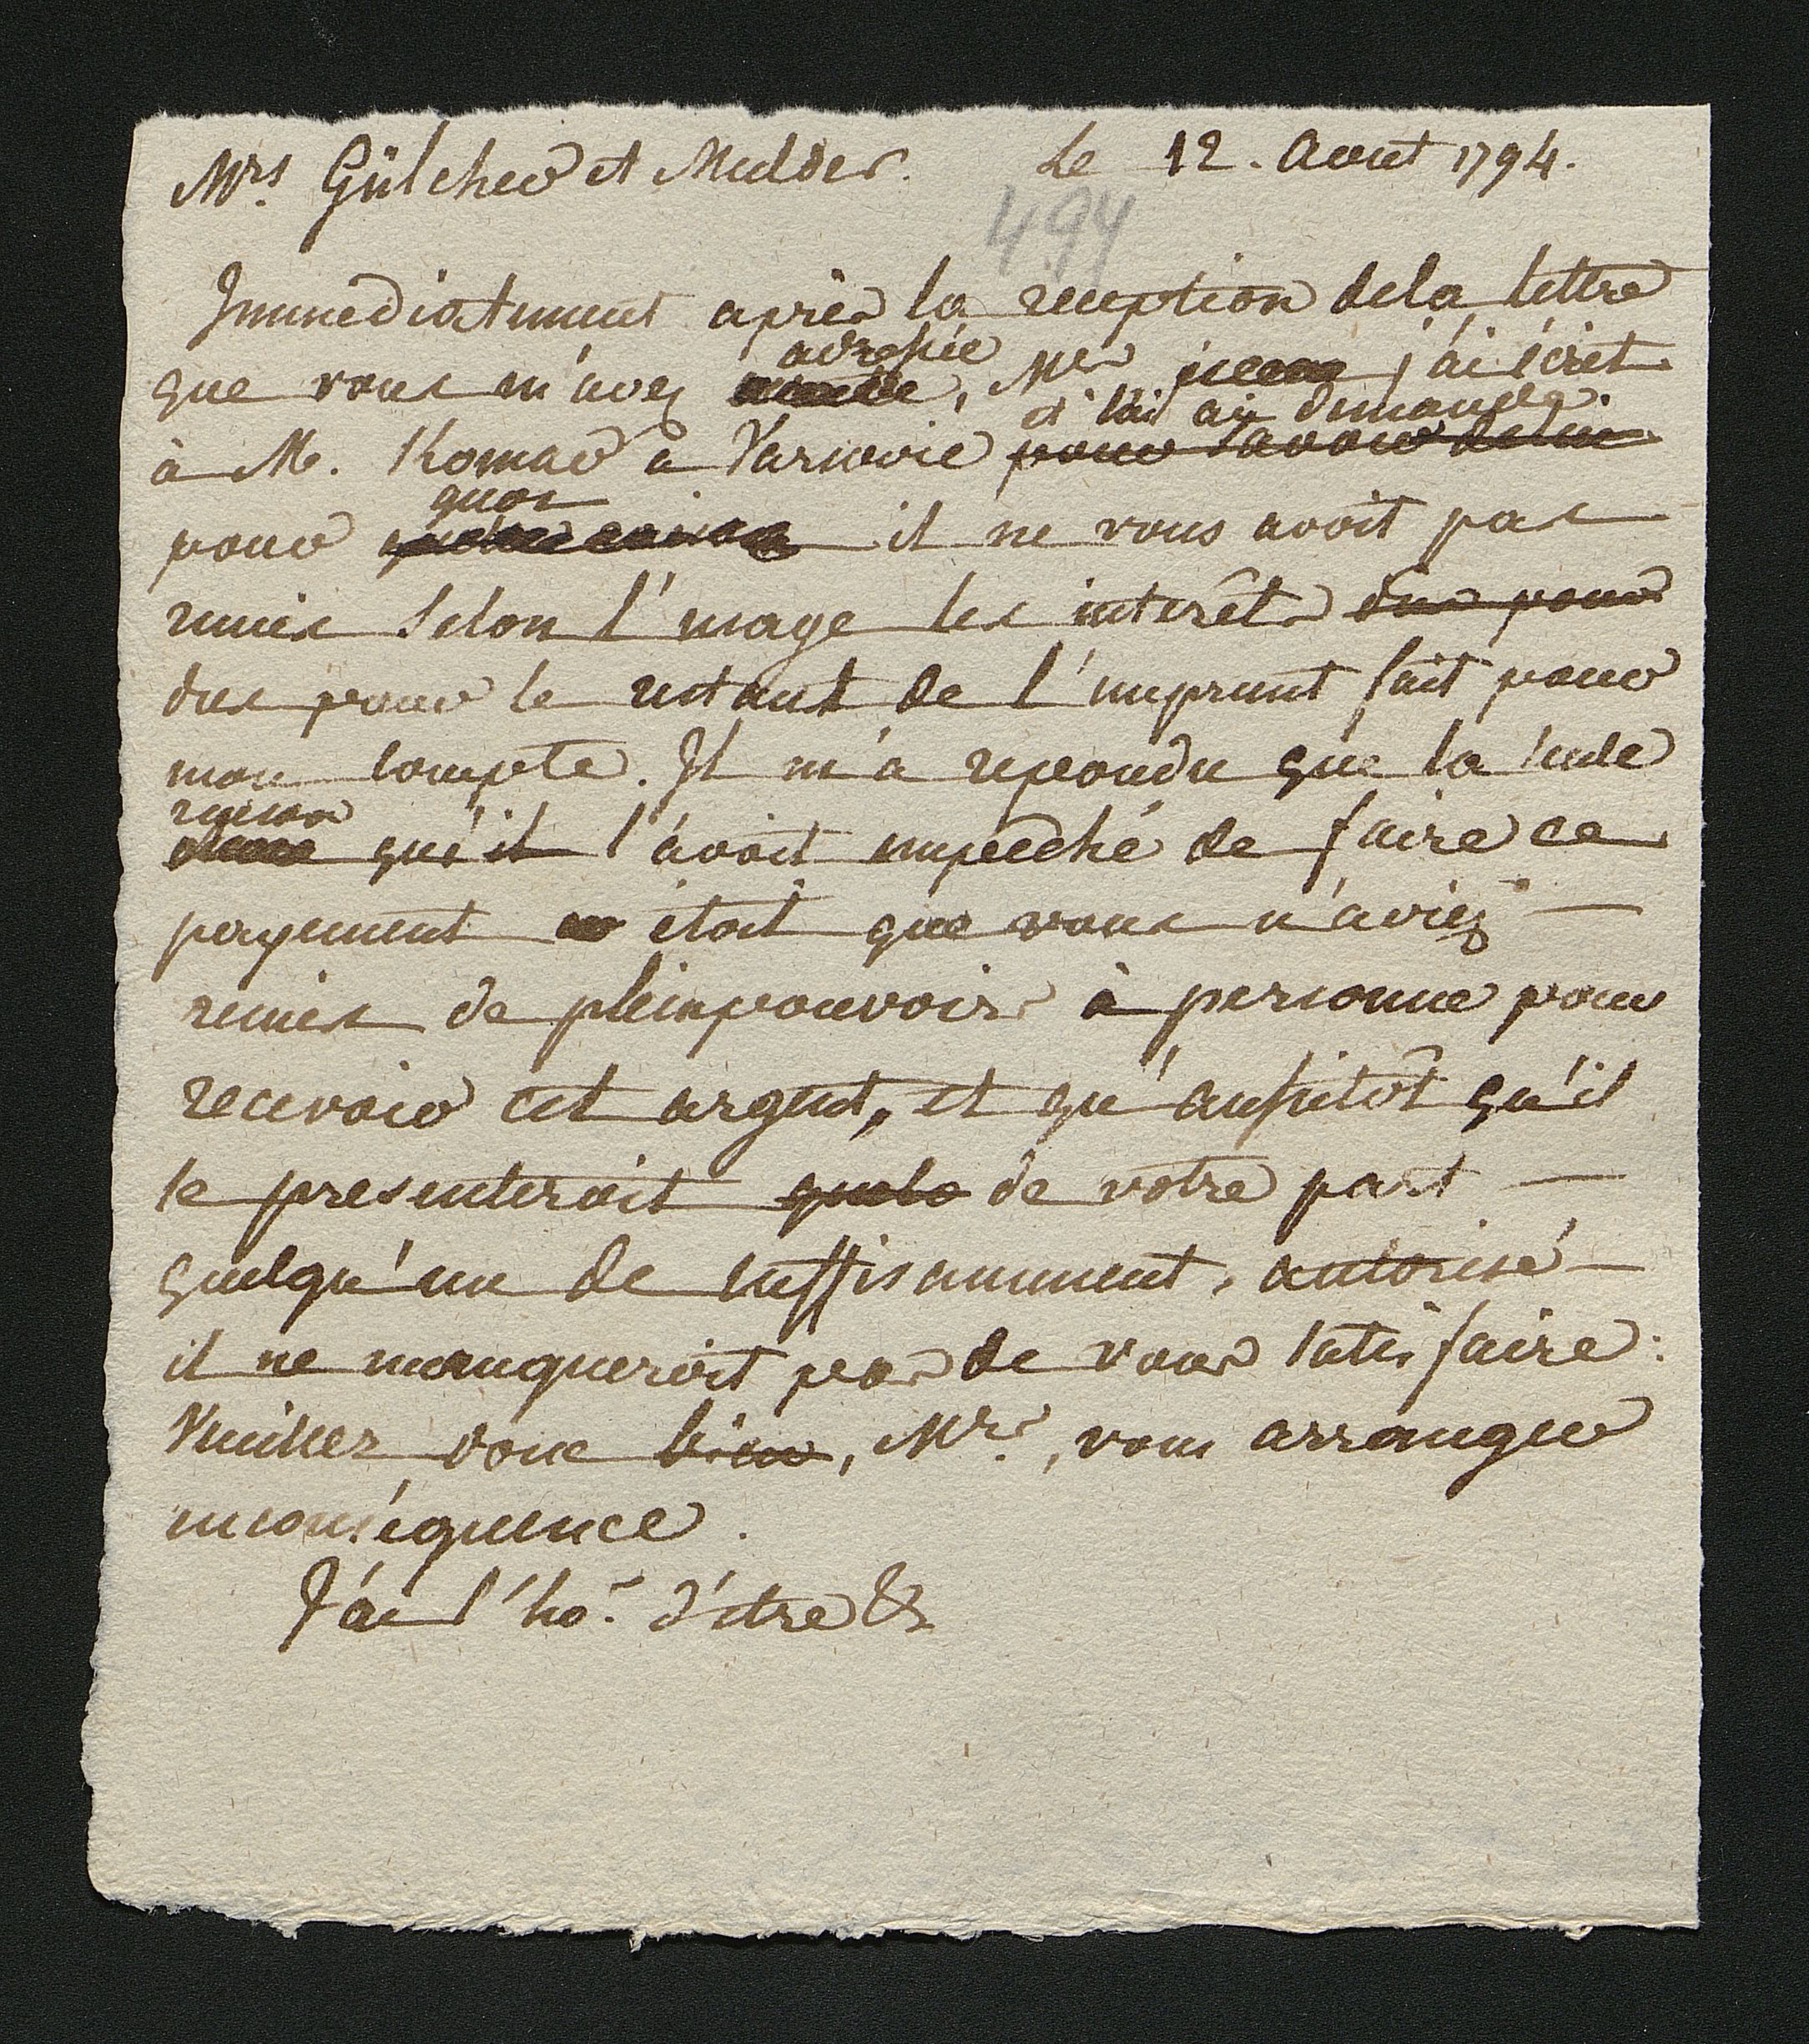 Mrs. Gülcher et Mulder. Le 12. Aout 1794.
494
Immediatement après la reception dela lettre
adressée
que vous m'avez , Mrs j'ai écrit
et lui ai demandé
à M. Komar à Varsovie pour savoir de lui
quoi
pour il ne vous avoit pas
remis selon l'usage les interêts dus pour
dus pour le restant de l'emprunt fait pour
mon compte. Il m'a repondu que la seule
raison
qui il l'avoit empeché de faire ce
payement étoit que vous n'aviez —
remis de pleinpouvoirs à personne pour
recevoir cet argent, et qu'aussitôt qu'il
se presenteroit quelq de votre part —
quelqu'un de suffisamment autorisé —
il ne manqueroit pas de vous satisfaire.
Veuillez donc bien, Mrs., vous arranger
enconséquence.
J'ai l'ho. d'étre &